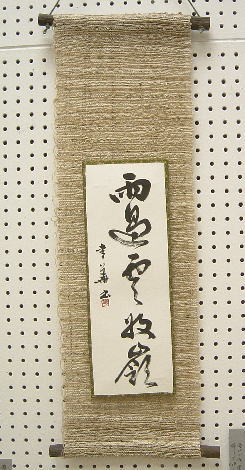 雨過雲收嶺